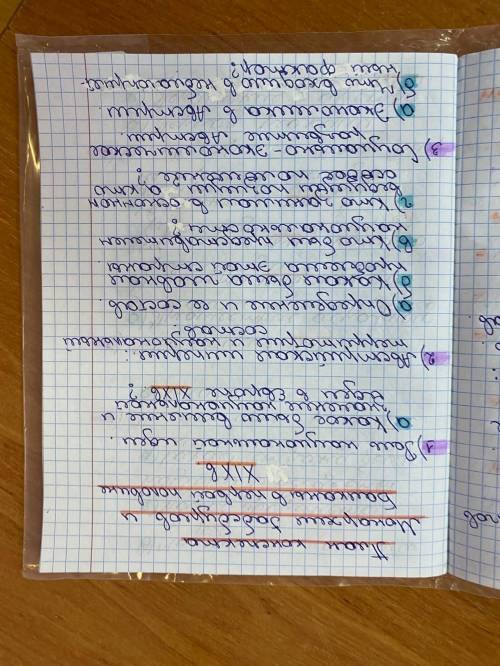 План конспекта
Монархия Габсбургов и
Балканы в первой половине
XIXв
1) Роль национальной идеи.
а) Какое было влияние и
значение национальной
идеи в Европе XIXв?
2) Австрийская империя:
территория и национальный
состав
а) Определение и ее состав.
б) Какая была главной
проблема этой страны
в) Кто был представителен
национальности?
г) Кто занимал в основном
высшии позиции, а кто
особое положение?
3) Социально-экономическое
развитие Австрии.
а) Экономика в Австрии.
б) Что входило в неблагоприят-
ный фактор?